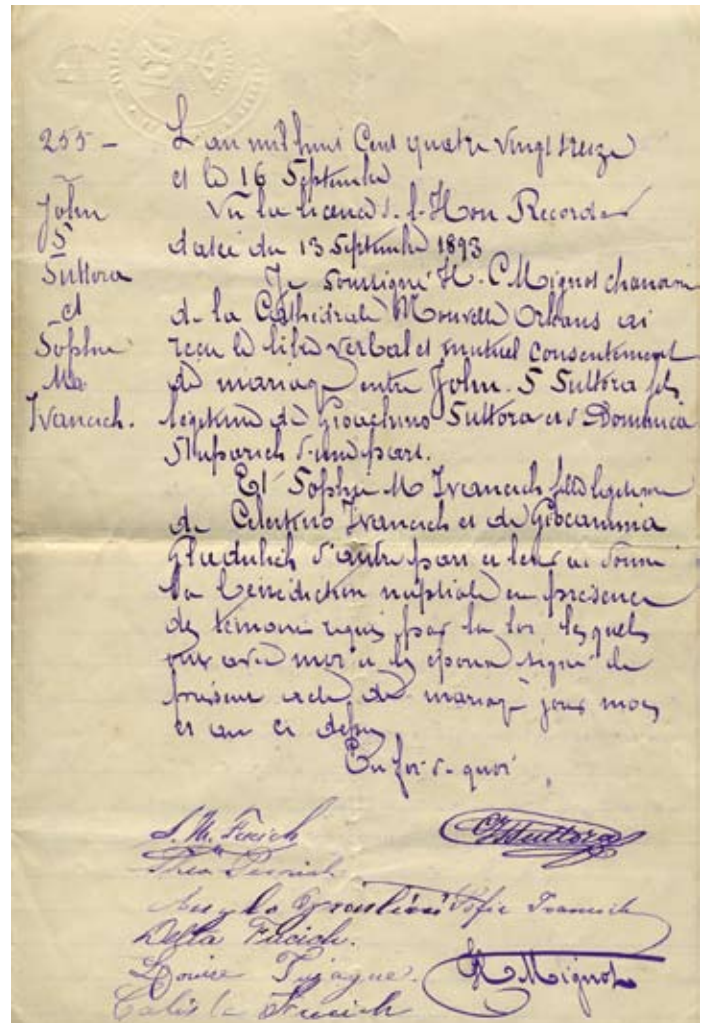 255 - L'an mil huit Cent quatre vingt treize
et le 16 Septembre
John
S
Suttora
et
Sophie
Ma
Ivancich.
Vu la licence de l'Hon Recorder
datée du 13 Septembre 1893
Je soussigné H. C. Mignot chanoine
de la Cathédrale Nouvelle Orléans ai
reçu le libre verbal et mutuel consentement
de mariage entre John. S Suttora fils
légitime de Gioachino Suttora et de Dominica
Stuparich d'une part.
Et Sophie M Ivancich fille légitime
de Celestino Ivancich et de
d'autre part et leur ai donné
la bénédiction nuptiale en présence
des témoins requis par la loi, lesquels
ont avec moi et les époux signé le
présent acte de mariage jour mois
et an ci dessus
En foi de quoi
Suttora
Sofie Ivancich
Della Fucich.
Louise Tujague.
Calista Fucich
Mignot